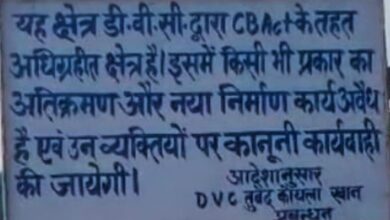 यह क्षेत्र डी॰वी॰सी॰द्वारा CBActके तहत
अधिग्रहीत क्षेत्र है। इसमें किसी भी प्रकार का
अतिक्रमण और नया निर्माण कार्य अवैध
है एवं उन व्यक्तियों पर कानूनी कार्यवाही
की जायेगी।
आदेशानुसार
DVC तुबेद कोयला खान
प्रबन्धन